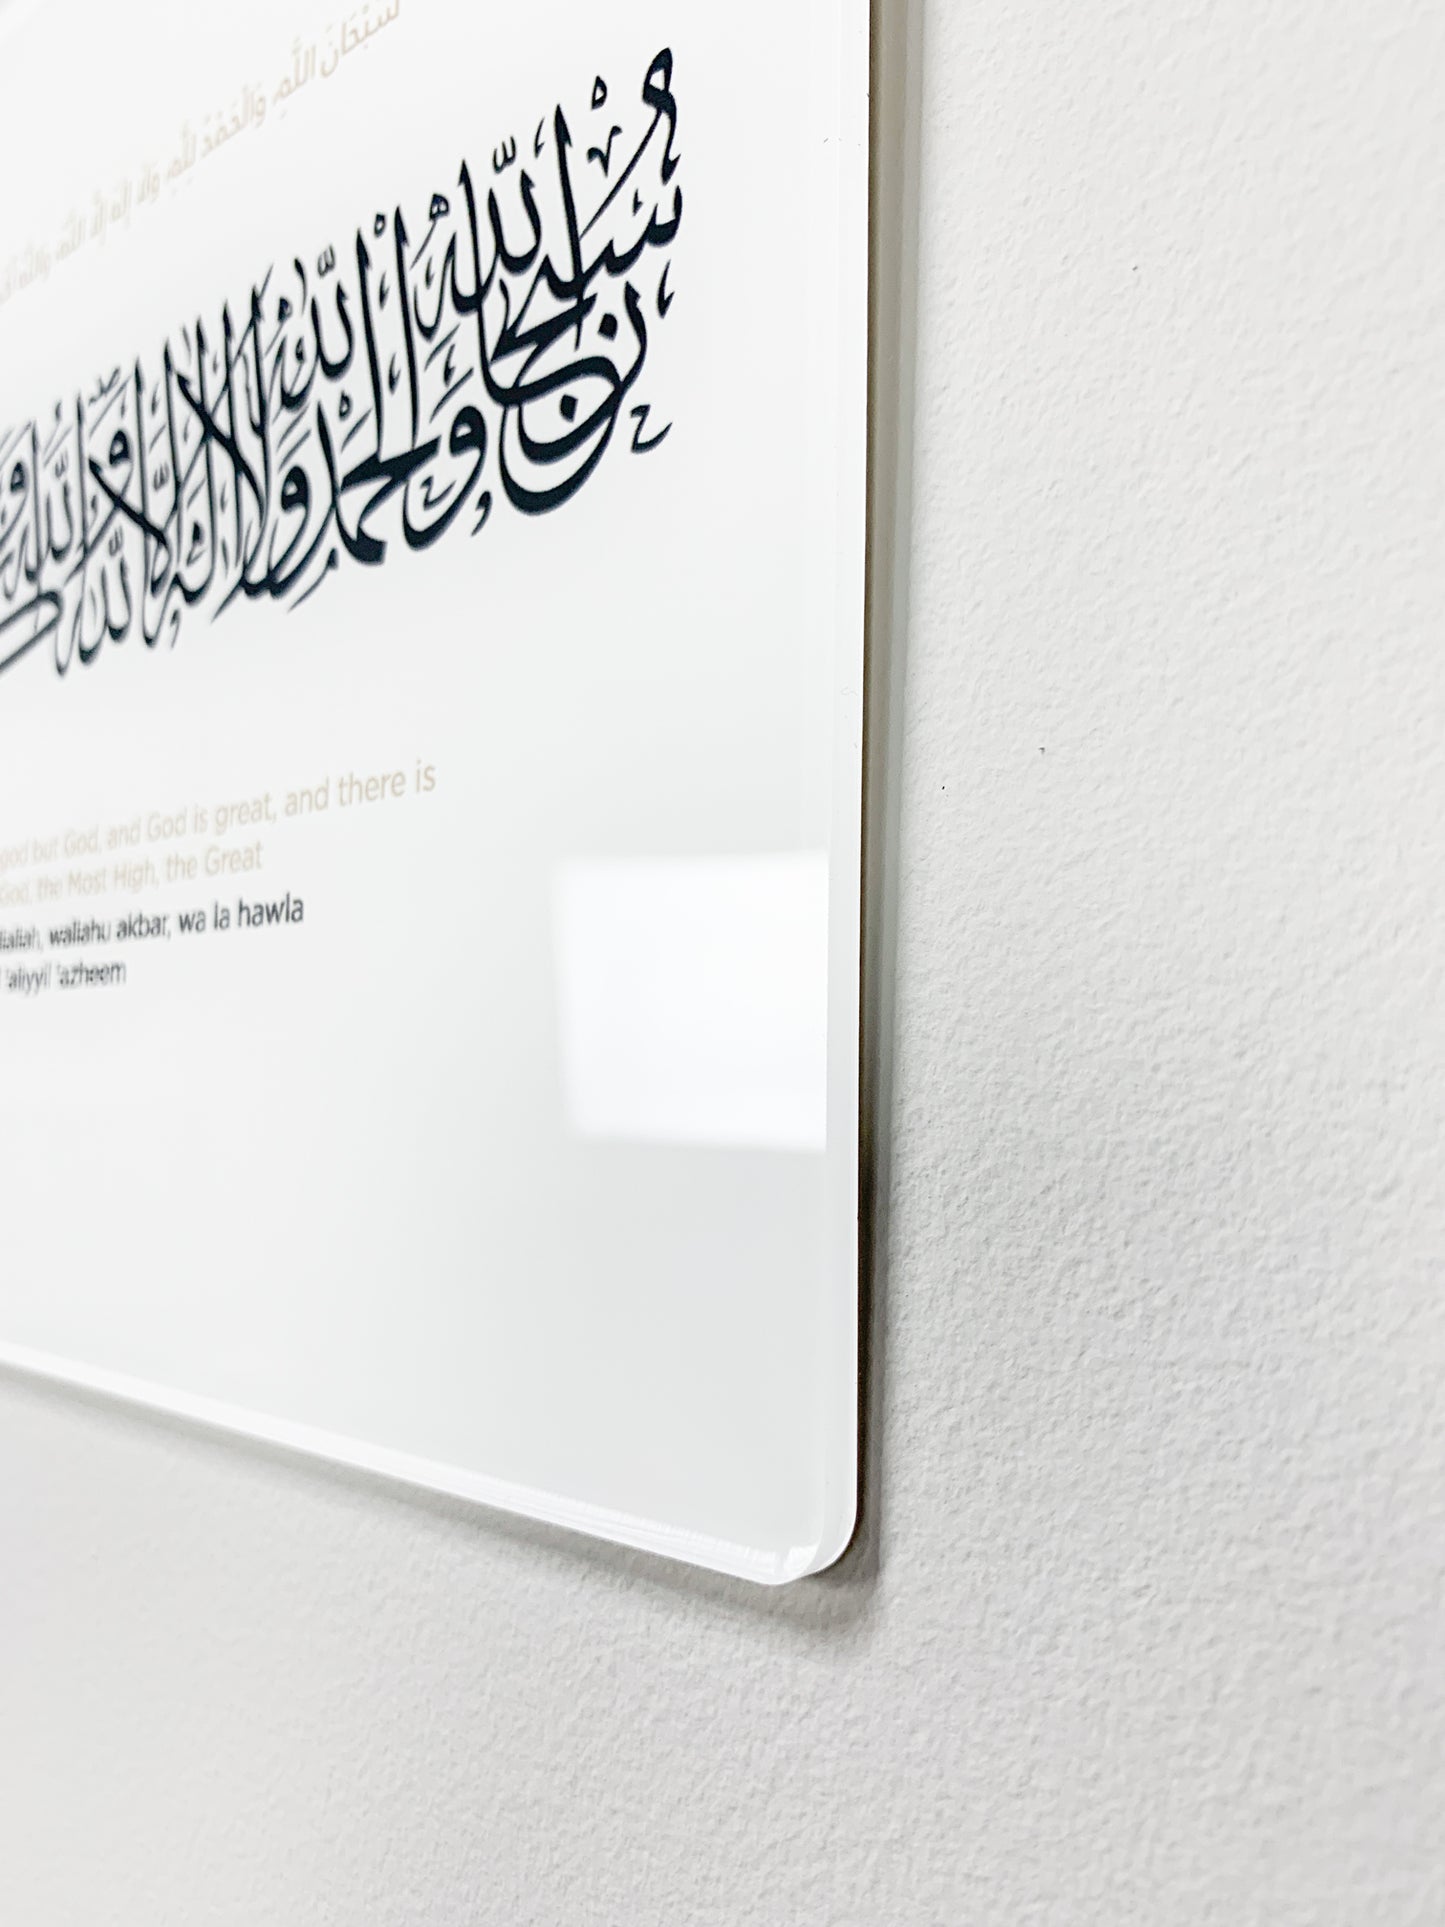 سُبْحَانَ اللَّهِ، وَالْحَمْدُ لِلَّهِ، وَلَا إِلَهَ إِلَّا اللَّهُ، وَاللَّهُ
سُبْحَانَ اللَّهِ وَالْحَمْدُ لِلَّهِ وَلَا إِلَهَ إِلَّا اللَّهُ وَاللَّهُ
god but God, and God is great, and there is
God, the Most High, the Great
wallahu akbar, wa la hawla
'aliyyil 'azheem